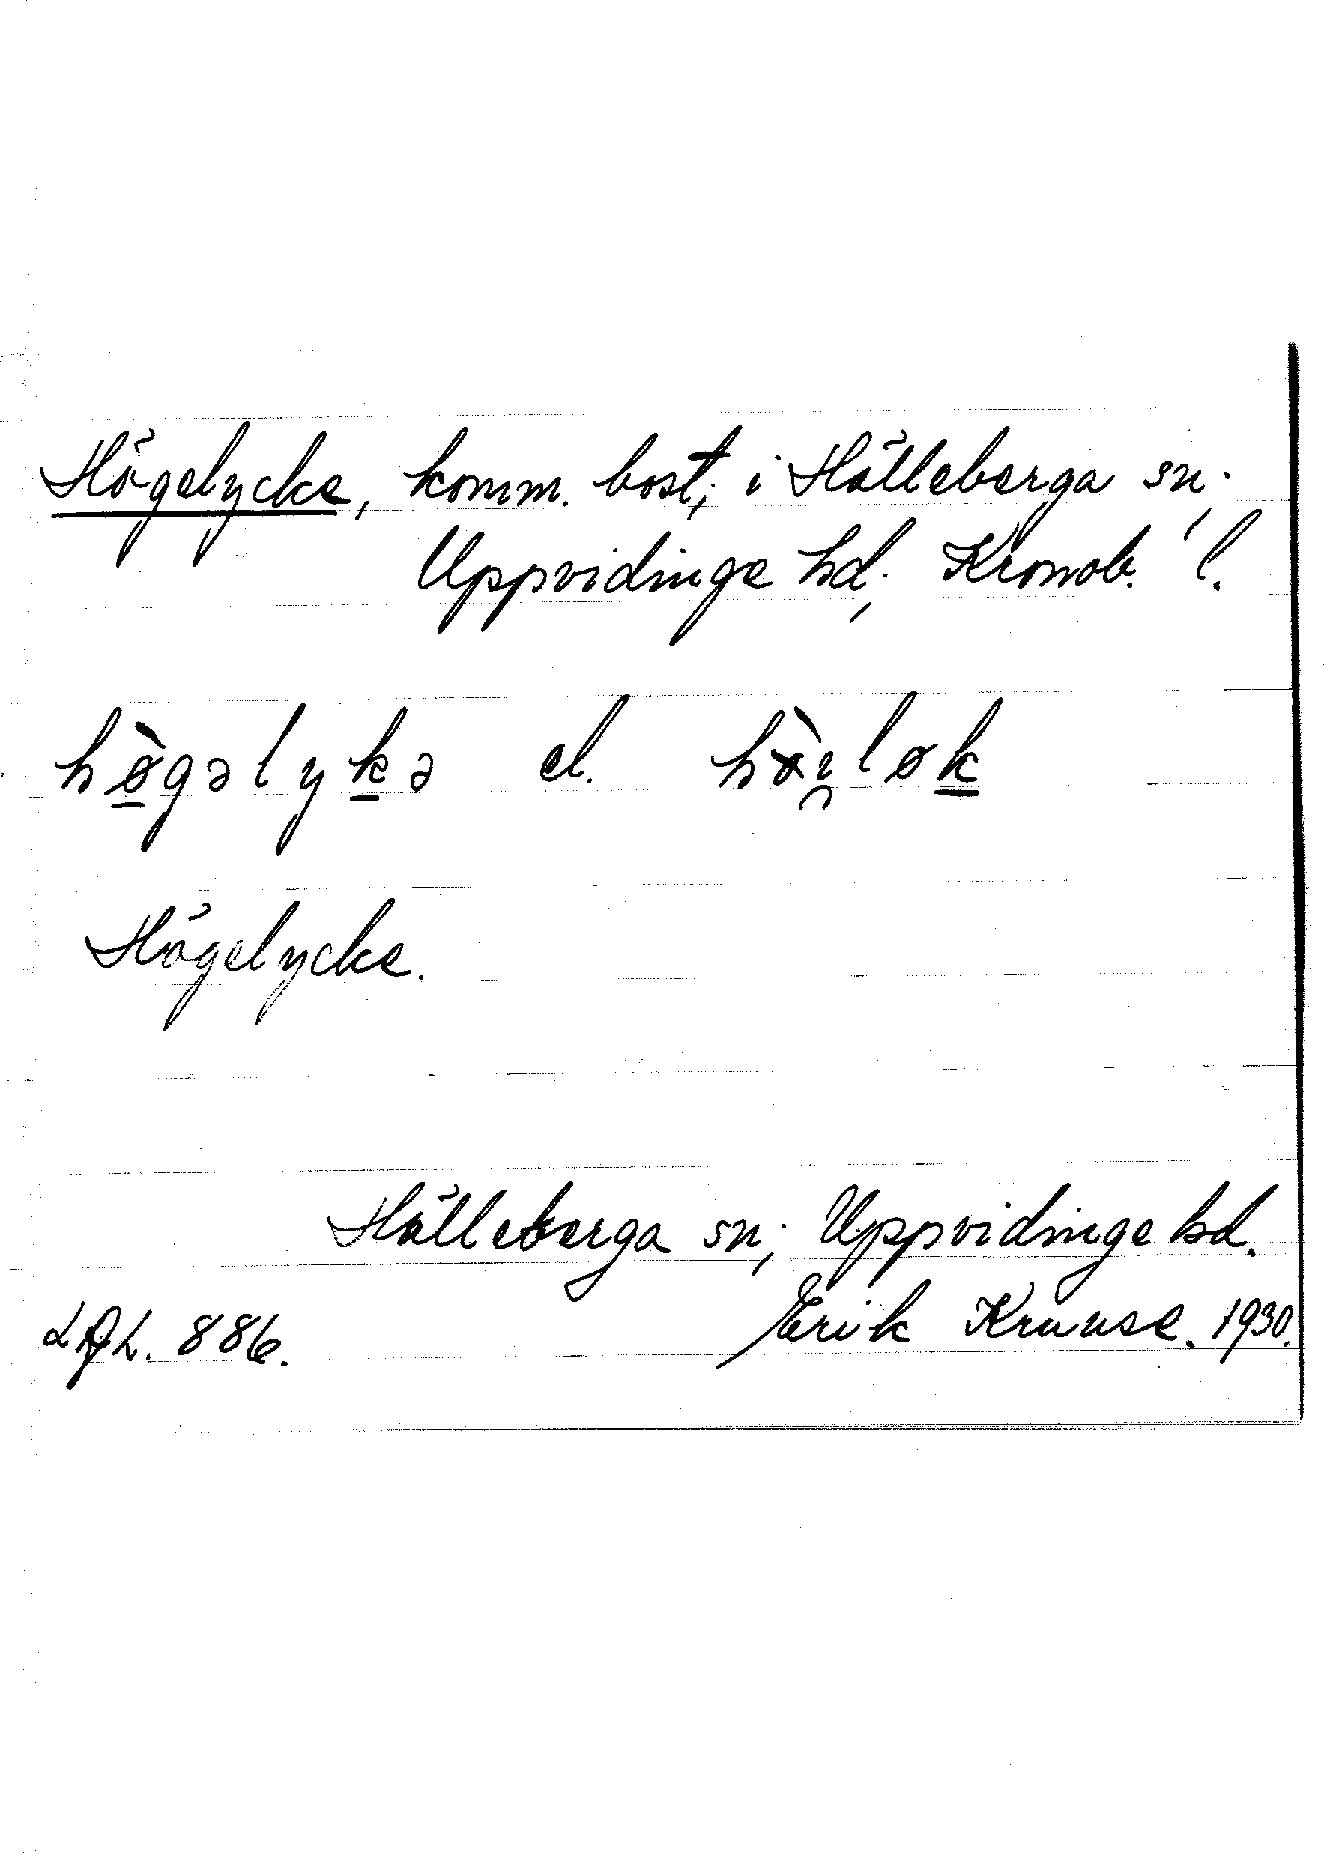 Högelycke, komm. bost., i Hälleberga sn.
Uppvidinge hd., Kronob. l.
hø̀gəlykə el. høi̯løk
Högelycke.
Hälleberga sn., Uppvidinge hd.
Erik Krause. 1930.
886.